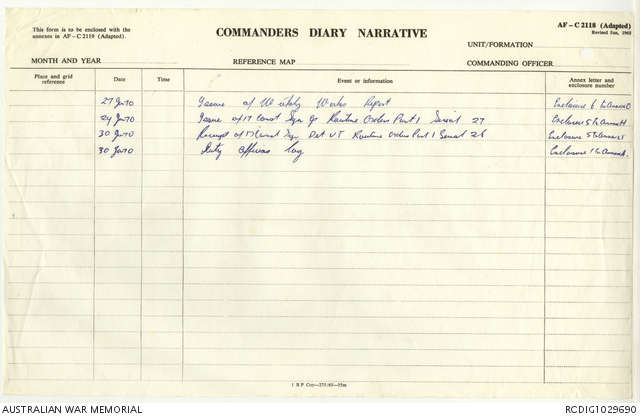 This form is to be enclosed with the
annexes in AF – C 2119 (Adapted).
COMMANDERS DIARY NARRATIVE
AF – C 2118 (Adapted)
Revised Jun, 1965
UNIT/FORMATION
MONTH AND YEAR
REFERENCE MAP
COMMANDING OFFICER
Place and grid
reference
Date
Time
Event or information
Annex letter and
enclosure number
27 Jun 70 Issue of Weekly Works Report Enclosure 6 to Annex
29 Jun 70 Issue of 17 Const Sqn Gp Routine Orders Part 1 Serial 27 Enclosure 5 to Annex H
30 Jun 70 Receipt of 17 Const Sqn Det VT Routine Orders Part 1 Serial 26 Enclosure 5 to Annex
30 Jun 70 Duty Officers Log Enclosure 1 to Annex
1 R P Coy—275/69—35m
AUSTRALIAN WAR MEMORIAL
RCDIG1029690